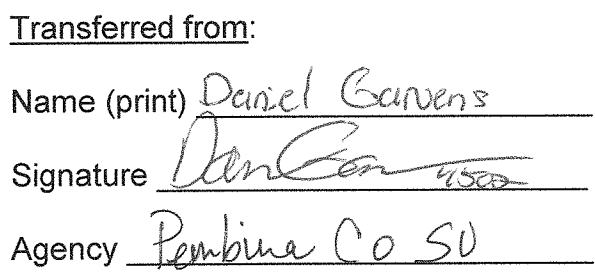 Transferred from:
Name (print) Daniel Garvens
Signature Dan Gar 4502
Agency Pembina Co SO